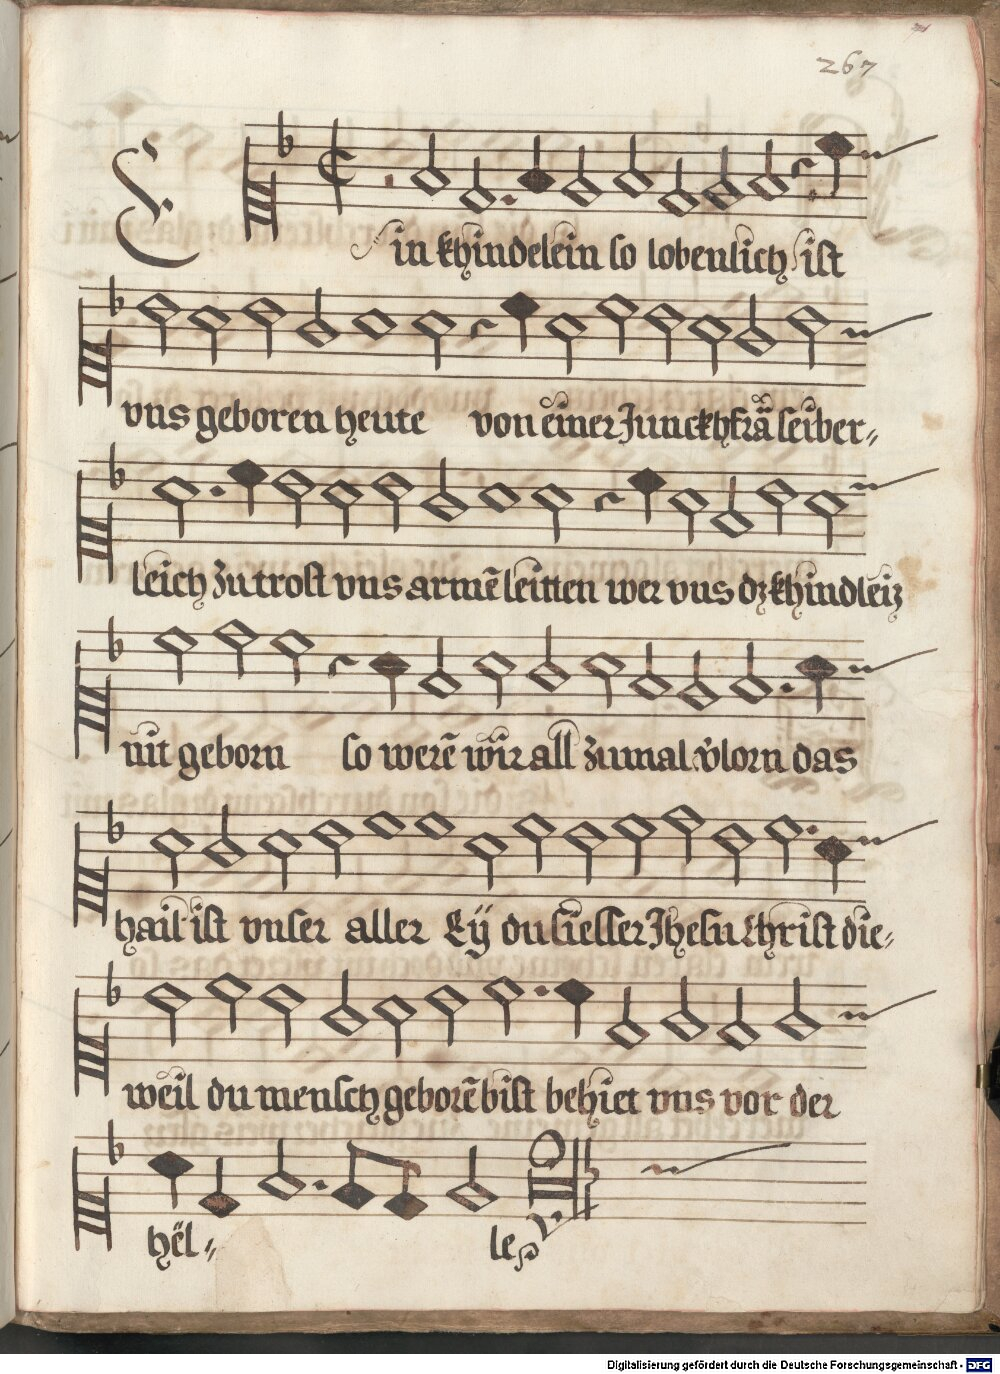 267
Ein khindelein so lobenlich ist
vns geboren heute von einer Junckhfraͤ seiber-
leich zu trost vns armē leitten wer vns dz khindleiz
nit geborn so werē wir all zumal v̓lorn das
hail ist vnser aller Eÿ du siesser Jhesu Christ die-
weil du mensch geborē bist behiet vns vor der
hël- le
Digitalisierung gefördert durch die Deutsche Forschungsgemeinschaft - DFG